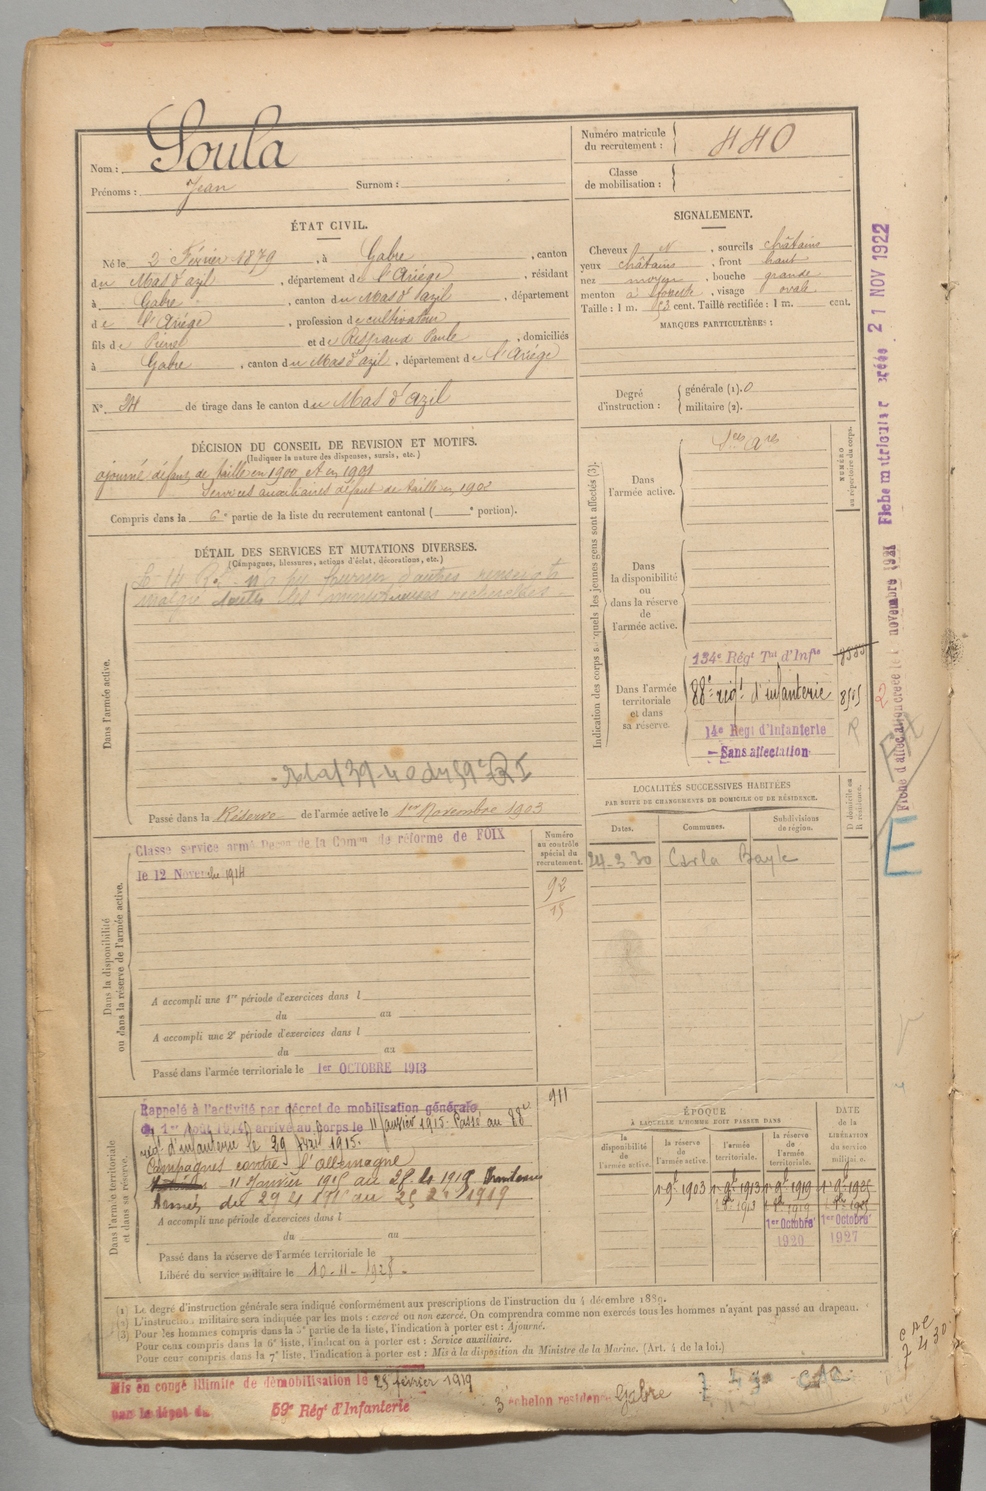 Nom : Soula
Prénoms : Jean Surnom :
Numéro matricule du recrutement : 440
Classe de mobilisation :
ÉTAT CIVIL.
Né le 2 Février 1879, à Gabre, canton
du Mas d'azil, département de l'Ariège, résidant
à Gabre, canton du Mas d'azil, département
de l'Ariège, profession de cultivateur
fils de et de Paule, domiciliés
à Gabre, canton du Mas d'azil, département de l'Ariège
N° 34 de tirage dans le canton du Mas d'Azil
SIGNALEMENT.
Cheveux N, sourcils châtains
yeux châtains, front haut
nez moyen, bouche grande
menton à fossette, visage ovale.
Taille : 1 m. 53 cent. Taille rectifiée : 1 m. cent.
MARQUES PARTICULIÈRES :
Degré d'instruction : générale (1). 0
militaire (2).
DÉCISION DU CONSEIL DE REVISION ET MOTIFS.
(Indiquer la nature des dispenses, sursis, etc.)
ajourné défaut de taille en 1900 et en 1901
Services auxiliaires défaut de taille en 1902
Compris dans la 6e partie de la liste du recrutement cantonal ( e portion).
DÉTAIL DES SERVICES ET MUTATIONS DIVERSES.
(Campagnes, blessures, actions d'éclat, décorations, etc.)
Le 14 n'a pu fournir d'autres renseigts
malgré toutes les recherches
Dans l'armée active.
Passé dans la Réserve de l'armée active le 1er Novembre 1903
Indication des corps auxquels les jeunes gens sont affectés (3).
NUMÉRO au répertoire du corps.
Dans l'armée active.
Sces Ares
Dans la disponibilité ou dans la réserve de l'armée active.
Dans l'armée territoriale et dans sa réserve.
134e Régt Tal d'Infie
88e régt d'infanterie 8505
14e Regt d'Infanterie
Sans affectation
R
LOCALITÉS SUCCESSIVES HABITÉES
PAR SUITE DE CHANGEMENTS DE DOMICILE OU DE RÉSIDENCE.
Dates. Communes. Subdivisions de région. D domicile ou R résidence.
24-3 30 Carla Bayle
Dans la disponibilité ou dans la réserve de l'armée active.
Numéro au contrôle spécial du recrutement.
Classé service armé de la Comon de réforme de FOIX
le 12 Novembre 1914
92
15
A accompli une 1re période d'exercices dans l
du au
A accompli une 2e période d'exercices dans l
du au
Passé dans l'armée territoriale le 1er OCTOBRE 1913
Dans l'armée territoriale et dans sa réserve.
911
Rappelé à l'activité par décret de mobilisation générale
du 1er Août 1914, arrivé au corps le 11 Janvier 1915. Passé au 88e
régt d'infanterie le 29 Avril 1915.
Campagnes contre l'Allemagne
11 Janvier 1915 au 28 4 1915
Armées du 29 4 1915 au 25 2 1919
A accompli une période d'exercices dans l
du au
Passé dans la réserve de l'armée territoriale le
Libéré du service militaire le 10-11-1928
ÉPOQUE
À LAQUELLE L'HOMME DOIT PASSER DANS
DATE DE LA LIBÉRATION du service militaire.
la disponibilité de l'armée active. la réserve de l'armée active. l'armée territoriale. la réserve de l'armée territoriale.
1903 1913 1919
1913 1919
1er Octobre 1920 1er Octobre 1927
(1) Le degré d'instruction générale sera indiqué conformément aux prescriptions de l'instruction du 4 décembre 1889.
(2) L'instruction militaire sera indiquée par les mots : exercé ou non exercé. On comprendra comme non exercés tous les hommes n'ayant pas passé au drapeau.
(3) Pour les hommes compris dans la 5e partie de la liste, l'indication à porter est : Ajourné.
Pour ceux compris dans la 6e liste, l'indication à porter est : Service auxiliaire.
Pour ceux compris dans la 7e liste, l'indication à porter est : Mis à la disposition du Ministre de la Marine. (Art. 4 de la loi.)
Mis en congé illimité de démobilisation le 25 février 1919
par le dépôt du 59e Régt d'Infanterie
3 échelon residence Gabre
Fiche matricule créée 21 NOV 1922